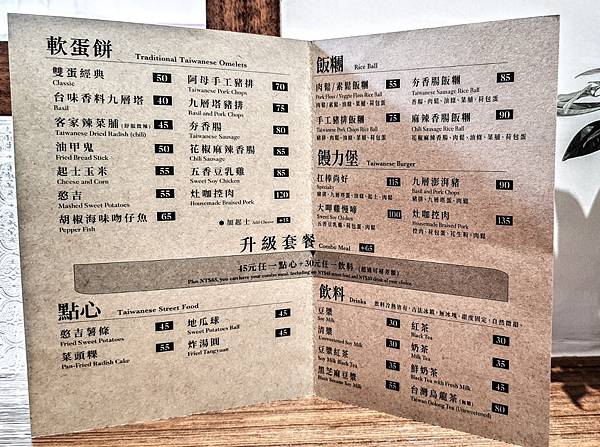 軟蛋餅
Traditional Taiwanese Omelets
雙蛋經典 50
Classic
台味香料九層塔 40
Basil
客家辣菜脯(舒服微辣) 45
Taiwanese Dried Radish (chili)
油甲鬼 50
Fried Bread Stick
起士玉米 55
Cheese and Corn
憨吉 55
Mashed Sweet Potatoes
胡椒海味吻仔魚 65
Pepper Fish
阿母手工豬排 70
Taiwanese Pork Chops
九層塔豬排 75
Basil and Pork Chops
夯香腸 80
Taiwanese Sausage
花椒麻辣香腸 85
Chili Sausage
五香豆乳雞 85
Sweet Soy Chicken
灶咖控肉 120
Housemade Braised Pork
●加起士 Add Cheese +15
飯糰 Rice Ball
肉鬆/素鬆飯糰 55
Pork Floss / Veggie Floss Rice Ball
肉鬆/素鬆、油條、菜脯、荷包蛋
手工豬排飯糰 75
Taiwanese Pork Chops Rice Ball
豬排、肉鬆、油條、菜脯、荷包蛋
夯香腸飯糰 85
Taiwanese Sausage Rice Ball
香腸、肉鬆、油條、菜脯、荷包蛋
麻辣香腸飯糰 90
Chili Sausage Rice Ball
花椒麻辣香腸、肉鬆、油條、菜脯、荷包蛋
饅力堡 Taiwanese Burger
扛棒尚好 115
Specialty
大呷雞慢啼 100
Sweet Soy Chicken
五香豆乳雞、荷包蛋、肉鬆
九層澎湃豬 90
Basil and Pork Chops
豬排、九層塔蛋、肉鬆
灶咖控肉 135
Housemade Braised Pork
控肉、荷包蛋、花生粉、肉鬆
升級套餐 Combo Meal +65
45元任一點心+30元任一飲料(超過可補差額)
點心 Taiwanese Street Food
憨吉薯條 45
Fried Sweet Potatoes
菜頭粿 55
Pan-Fried Radish Cake
地瓜球 45
Sweet Potatoes Ball
炸湯圓 55
Fried Tangyuan
飲料 Drinks
飲料冷熱皆有，古法冰鎮，無冰塊，甜度固定，自然微甜。
豆漿 30
Soy Milk
清漿 30
Unsweetened Soy Milk
豆漿紅茶 30
Soy Milk Black Tea
黑芝麻豆漿 55
Black Sesame Soy Milk
紅茶 30
Black Tea
奶茶 35
Milk Tea
鮮奶茶 45
Black Tea with Fresh Milk
台灣烏龍茶(無糖) 80
Taiwan Oolong Tea (Unsweetened)